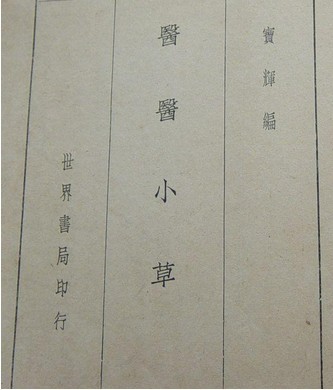 寶輝編
醫醫小草
世界書局印行